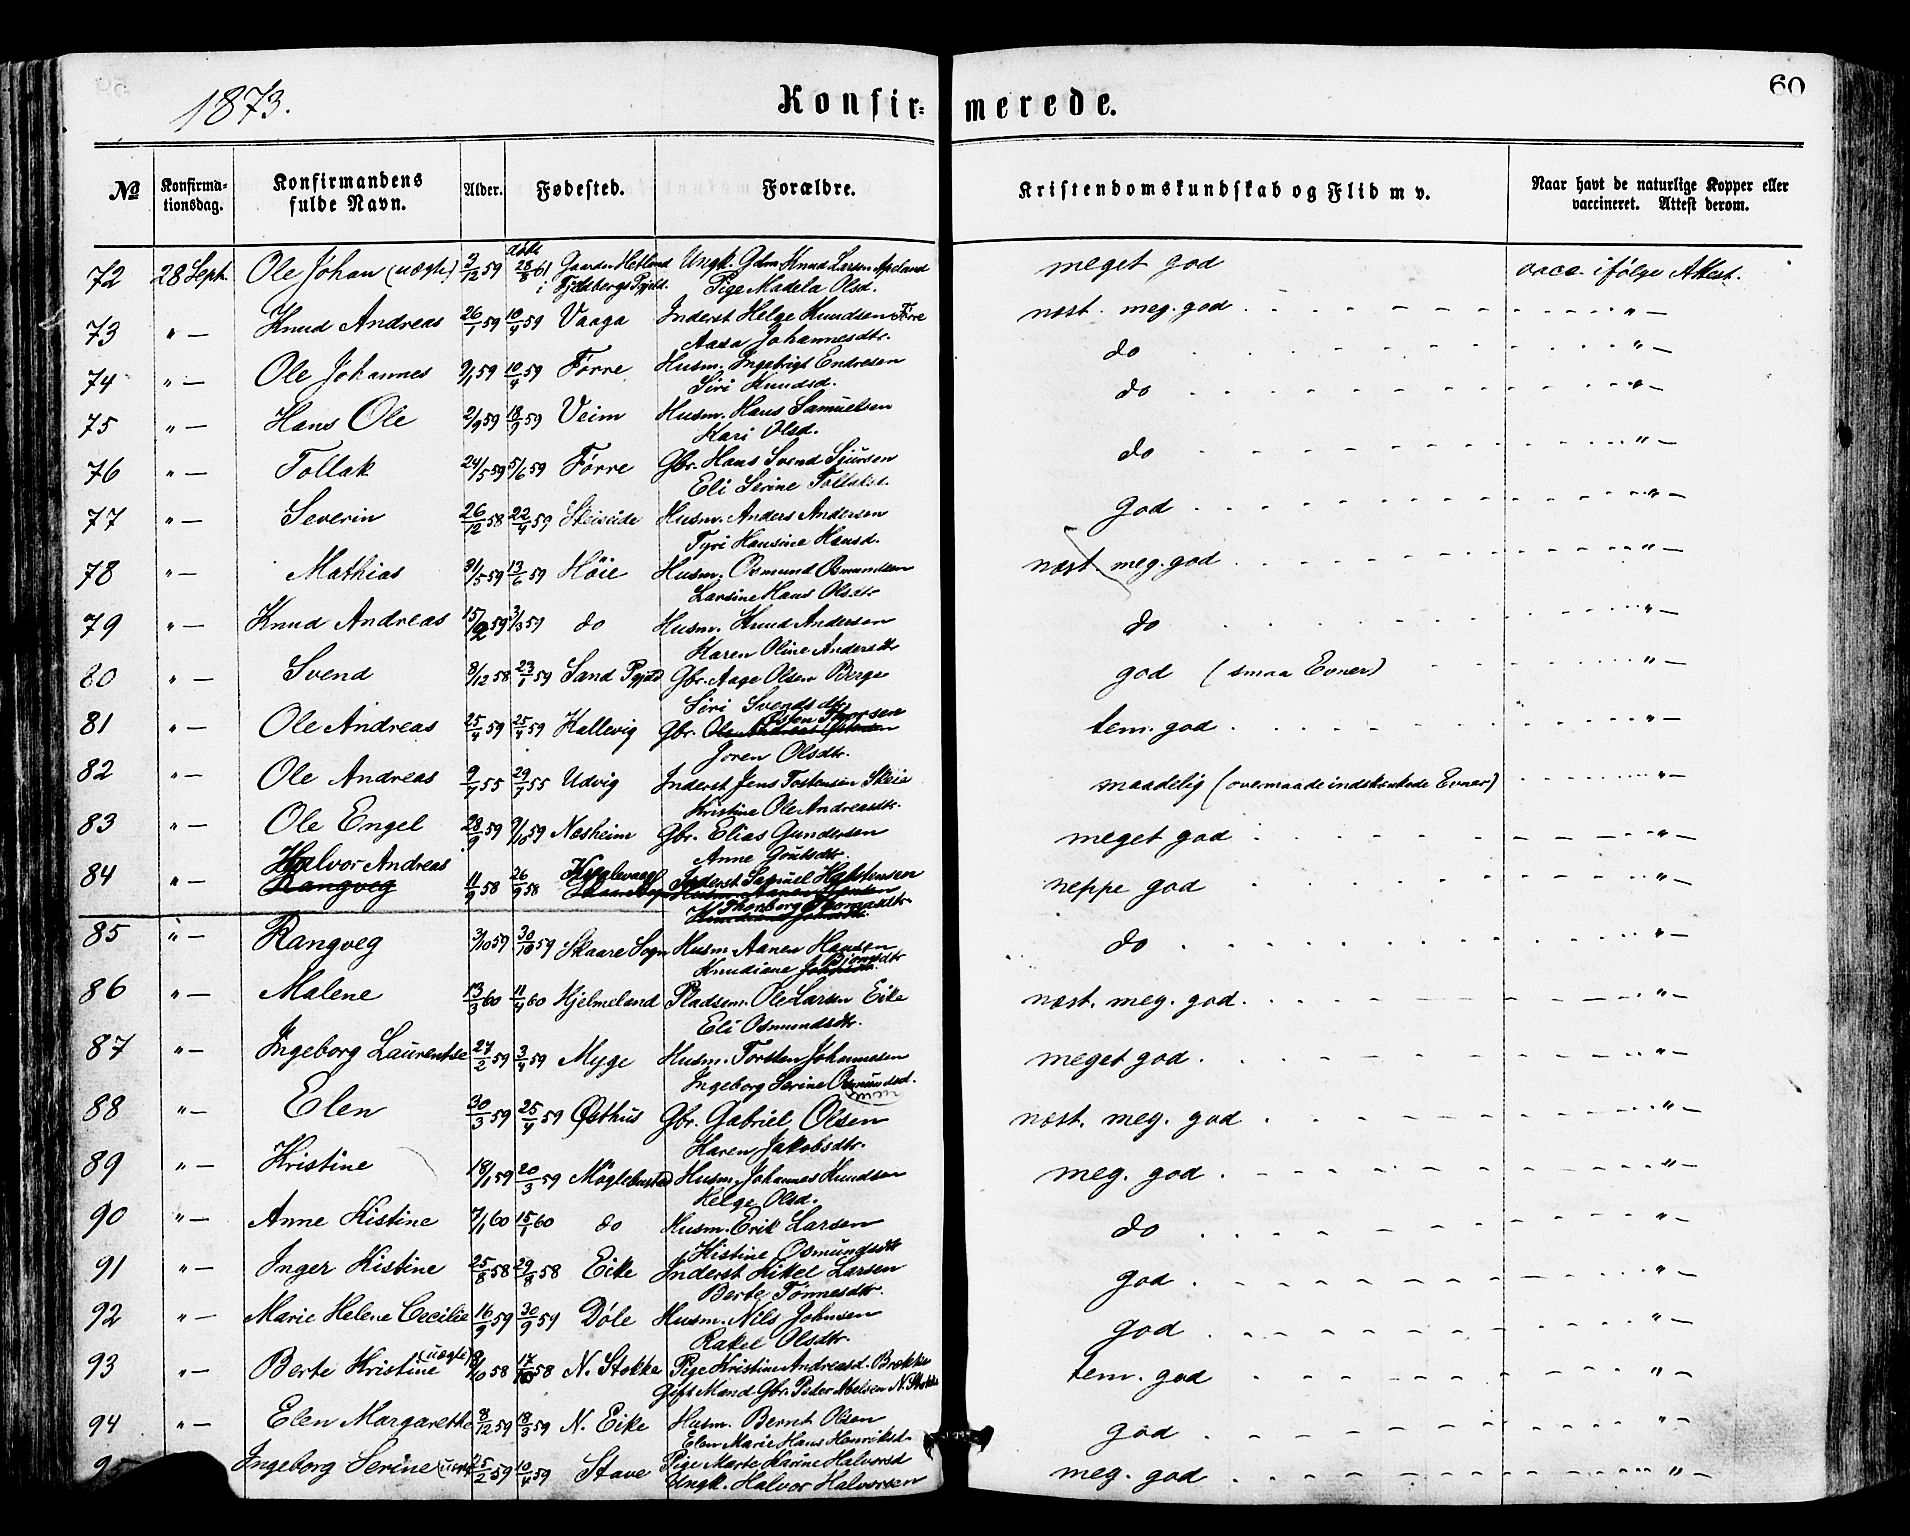 1873.
Konfir= merede.
60
No Konfirma= tionsdag. Konfirmandens fulde Navn. Alder. Fødested. Forældre. Kristendomskundskab og Flid m v. Naar havt de naturlige Kopper eller vaccineret. Attest derom.
72 28 Sept. Ole Johan (uægte) 3/12 59 døbt 28/8 61 Gaarden Hetland Ungk. Gdm Knud Larsen meget god vacc. ifølge Attest.
i Fjeldbergs Pgjeld. Pige Madela Olsd.
73 " — Knud Andreas 26/1 59 10/4 59 Vaaga Inderst Helge Knudsen Førre næst. meg. god " —
Aasa Johannesdtr.
74 " — Ole Johannes 9/1 59 10/4 59 Førre Husm. Ingebrigt Endresen do " —
Siri Knudsd.
75 " — Hans Ole 2/9 59 18/9 59 Veim Husm. Hans Samuelsen do " —
Kari Olsd.
76 " — Tollak 24/5 59 5/6 59 Førre Gbr. Hans Svend Sjursen do " —
Eli Serine Tollaksd.
77 " — Severin 26/12 58 22/4 59 Husm. Anders Andersen god " —
Tyri Hansine Hansd.
78 " — Mathias 31/5 59 13/6 59 Høie Husm. Osmund Osmundsen næst meg. god " —
Larsine Hans Olsdtr
79 " — Knud Andreas 15/2 59 3/3 59 do Husm. Knud Andersen do " —
Karen Oline Andersdtr
80 " — Svend 8/12 58 23/1 59 Sand Pgjeld Gbr. Aage Olsen Berge god (smaa Evner) " —
Siri Svendsdtr
81 " — Ole Andreas 25/4 59 25/4 59 Hallevig Gbr. tem. god " —
Joren Olsdtr.
82 " — Ole Andreas 9/7 55 29/7 55 Udvig Inderst Jens Tostensen maadelig (overmaade indskrænkede Evner) " —
Kristine Ole Andreasdtr.
83 " — Ole Engel 28/9 59 9/10 59 Nesheim Gbr. Elias Gundersen meget god " —
Anne Goutsdtr.
84 " — Halvor Andreas 11/9 58 26/9 58 Inderst Samuel neppe god " —
Rangveg
Thorborg Thomasdtr.
85 " — Rangveg 3/10 59 30/10 59 Skaare Sogn Husm. Aanen Hansen do " —
Knudiane
86 " — Malene 13/3 60 11/4 60 Hjelmeland Pladsem. Ole Larsen Eike næst. meg. god. " —
Eli Osmundsdtr.
87 " — Ingeborg Laurentse 27/2 59 3/4 59 Myge Husm. Torsten Johannesen meget god " —
Ingeborg Serine Osmundsd.
88 " — Elen 30/3 59 25/4 59 Østhus Gbr. Gabriel Olsen næst. meg. god " —
Karen Jakobsdtr.
89 " — Kristine 18/1 59 20/3 59 Husm. Johannes Knudsen meg. god " —
Helge Olsd.
90 " — Anne Kistine 7/1 60 15/1 60 do Husm. Erik Larsen do " —
Kistine Osmundsdtr
91 " — Inger Kistine 25/8 58 29/8 58 Eike Inderst Mikel Larsen god " —
Berte Tønnesdtr.
92 " — Marie Helene Cecilie 16/9 59 30/9 59 Døle Husm. Nils Johnsen god " —
Rakel Olsdtr.
93 " — Berte Kristine (uægte) 9/10 58 17/10 58 N. Stokke Pige Kristine Andreasd. tem. god " —
Gift Mand Gbr. Peder N. Stokke
94 " — Elen Margarethe 8/12 59 18/3 59 N. Eike Husm. Bernt Olsen god " —
Elen Marie Hans Henriksd.
95 Ingeborg Serine 25/2 59 10/4 59 Stave Pige Marte Karine Halvorsd meg. god " —
Ungk. Halvor Halvorsen